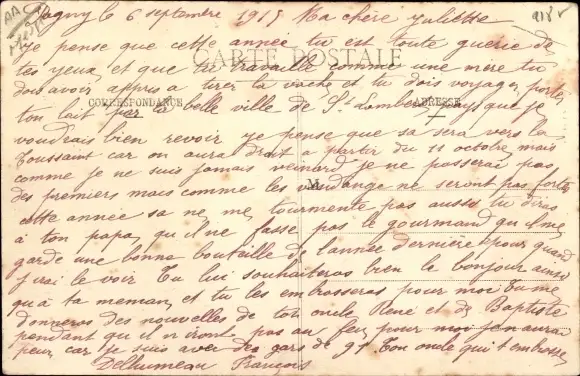 Lagny le 6 septembre 1915 Ma chère Juliette
je pense que cette année tu est toute guerie de
CARTE POSTALE
tes yeux, et que tu travaille comme une mère tu
dois avoir appris a tirer la vache et tu dois voyager porter
CORRESPONDANCE
ADRESSE
ton lait par la belle ville de St Lambert pays que je
voudrais bien revoir je pense que sa sera vers la
toussaint car on aura droit a partir du 11 octobre mais
comme je ne suis jamais veinard je ne passerai pas
M
des premiers mais comme les vendange ne seront pas fortes
cette année sa ne me tourmente pas aussi tu diras
à ton papa qu il ne fasse pas le gourmand qu il me
garde une bonne bouteille de l'année dernière pour quand
j irai le voir Tu lui souhaiteras bien le bonjour ainsi
qu'à ta meman et tu les embrasseras pour moi tu me
donneras des nouvelles de ton oncle René et de Baptiste
pendant qu il n iront pas au feu pour moi j en aurai
peur car je suis avec des gars de 91 Ton oncle qui t embrasse
Delhumeau François